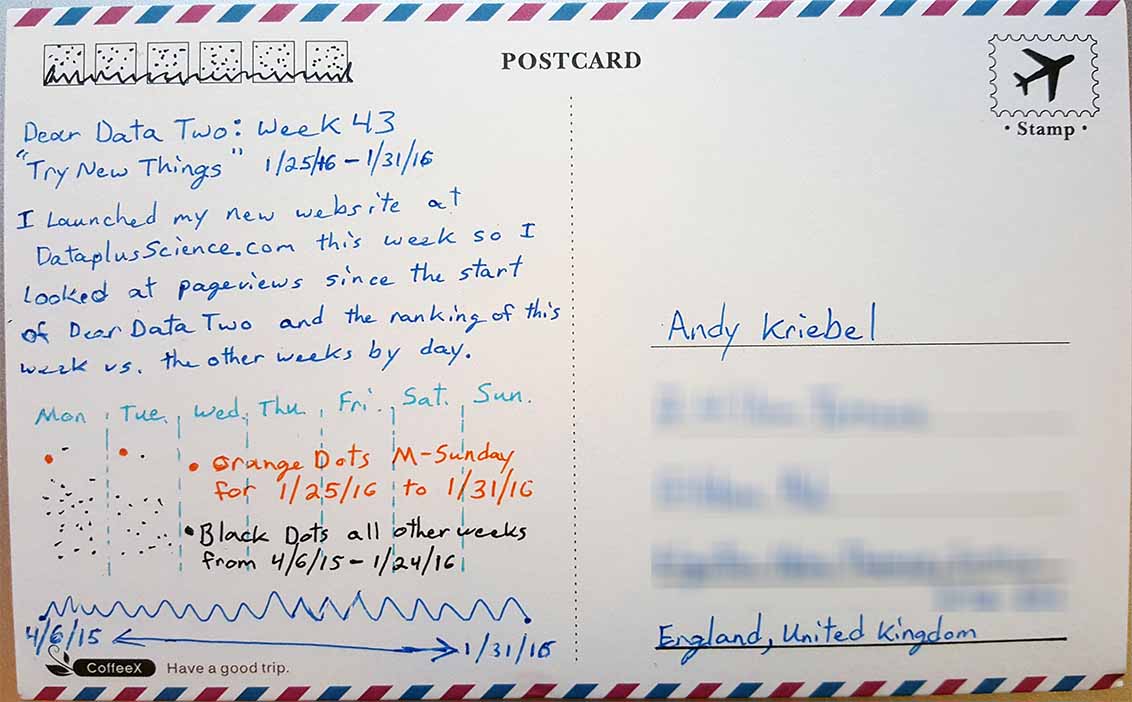 POSTCARD
• Stamp •
Dear Data Two: Week 43
"Try New Things" 1/25/16 - 1/31/16
I Launched my new website at
DataplusScience.com this week so I
Looked at pageviews since the start
of Dear Data Two and the ranking of this
week vs. the other weeks by day.
Mon Tue. Wed. Thu. Fri. Sat. Sun.
• Orange Dots M-Sunday
for 1/25/16 to 1/31/16
• Black Dots all other weeks
from 4/6/15 - 1/24/16
4/6/15 1/31/16
CoffeeX Have a good trip.
Andy Kriebel
England, United Kingdom